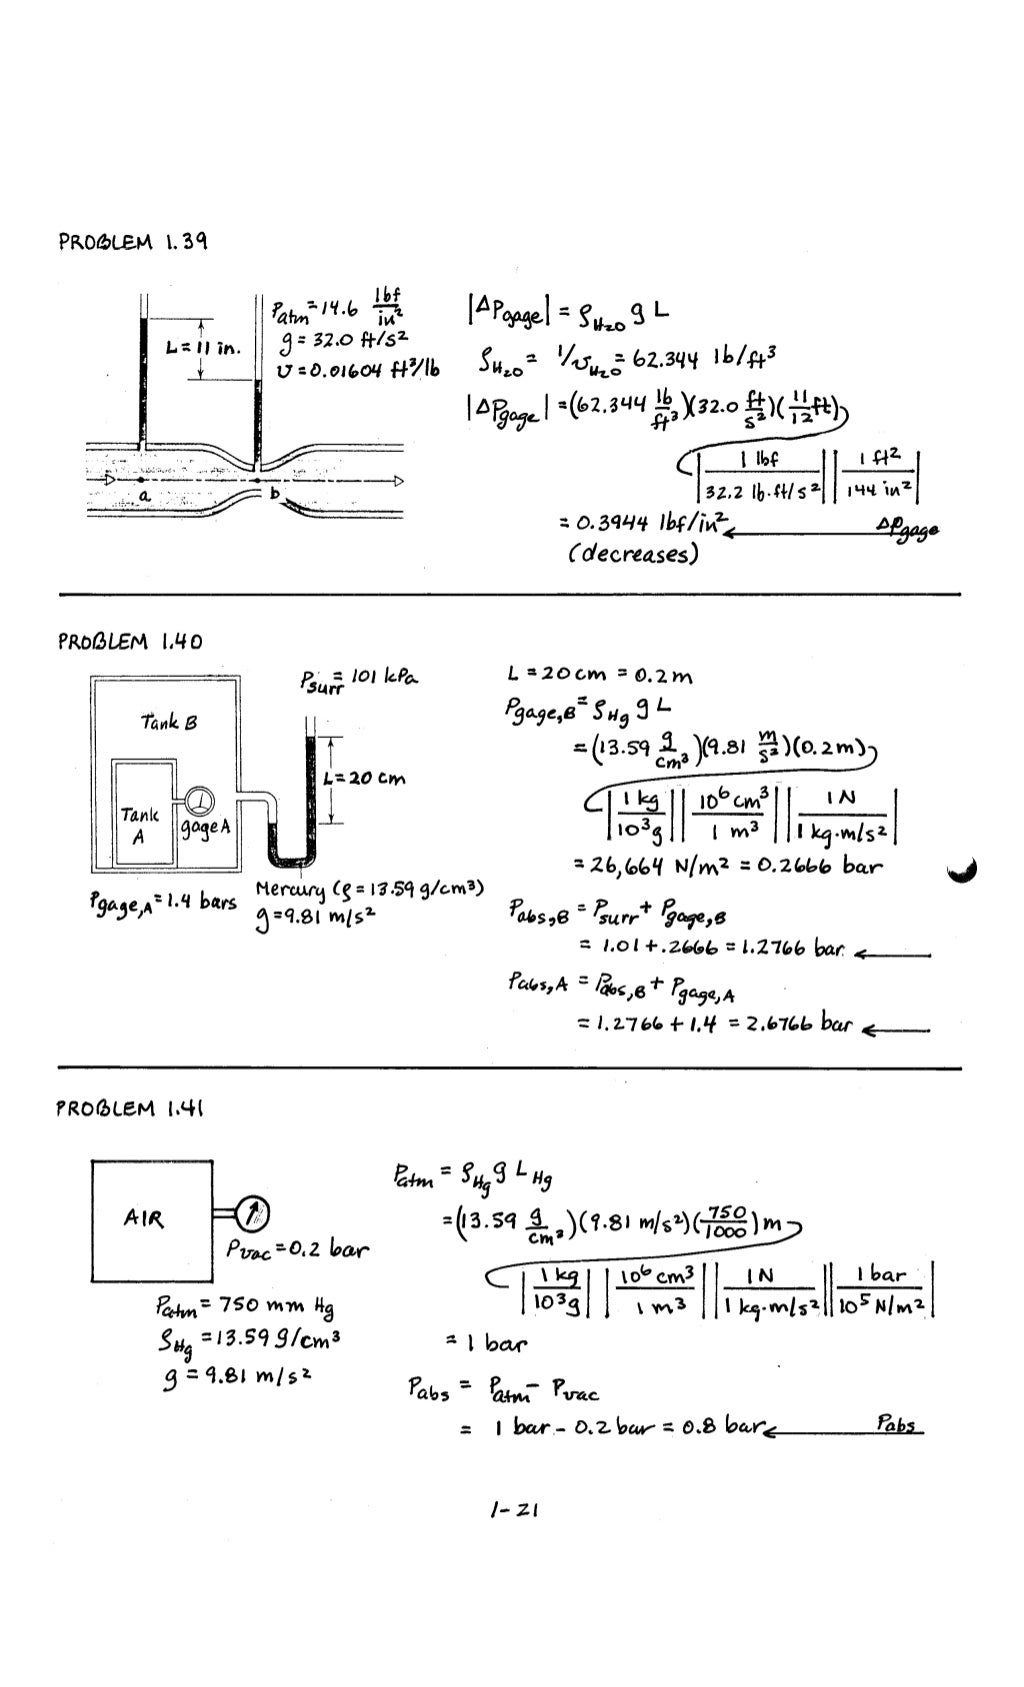 PROBLEM 1.39
L = 11 in.
Patm = 14.6 lbf/in²
g = 32.0 ft/s²
v = 0.01604 ft³/lb
a
b
|ΔPgage| = ρH₂O g L
ρH₂O = 1/vH₂O = 62.344 lb/ft³
|ΔPgage| = (62.344 lb/ft³)(32.0 ft/s²)(11/12 ft)
|1 lbf / 32.2 lb·ft/s²| |1 ft² / 144 in²|
= 0.3944 lbf/in² ← ΔPgage
(decreases)
PROBLEM 1.40
Tank B
Tank A
gage A
Psurr = 101 kPa
L = 20 cm
Pgage,A = 1.4 bars
Mercury (ρ = 13.59 g/cm³)
g = 9.81 m/s²
L = 20 cm = 0.2 m
Pgage,B = ρHg g L
= (13.59 g/cm³)(9.81 m/s²)(0.2 m)
|1 kg / 10³g| |10⁶ cm³ / 1 m³| |1 N / 1 kg·m/s²|
= 26,664 N/m² = 0.2666 bar
Pabs,B = Psurr + Pgage,B
= 1.01 + .2666 = 1.2766 bar ←
Pabs,A = Pabs,B + Pgage,A
= 1.2766 + 1.4 = 2.6766 bar ←
PROBLEM 1.41
AIR
Pvac = 0.2 bar
Patm = 750 mm Hg
ρHg = 13.59 g/cm³
g = 9.81 m/s²
Patm = ρHg g LHg
= (13.59 g/cm³)(9.81 m/s²)(750/1000) m
|1 kg / 10³g| |10⁶ cm³ / 1 m³| |1 N / 1 kg·m/s²| |1 bar / 10⁵ N/m²|
= 1 bar
Pabs = Patm - Pvac
= 1 bar - 0.2 bar = 0.8 bar ← Pabs
1-21